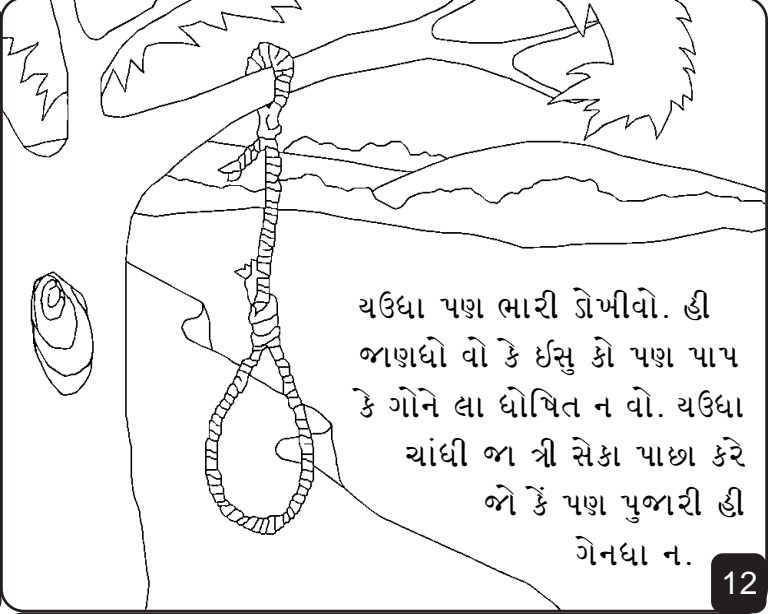 યઉધા પણ ભારી ડોખીવો. હી
જાણધો વો કે ઈસુ કો પણ પાપ
કે ગોને લા ધોષિત ન વો. યઉધા
ચાંધી જા ત્રી સેકા પાછા કરે
જો કેં પણ પુજારી હી
ગેનધા ન.
12